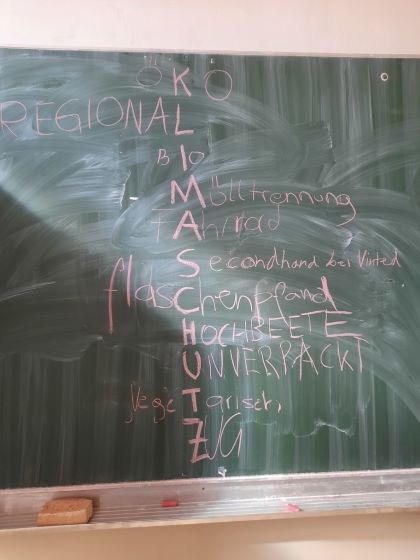 ÖKO
REGIONAL
BIO
Mülltrennung
Fahrrad
Secondhand bei Vinted
flaschenpfand
HOCHBEETE
UNVERPACKT
VegeTarisch,
ZUG